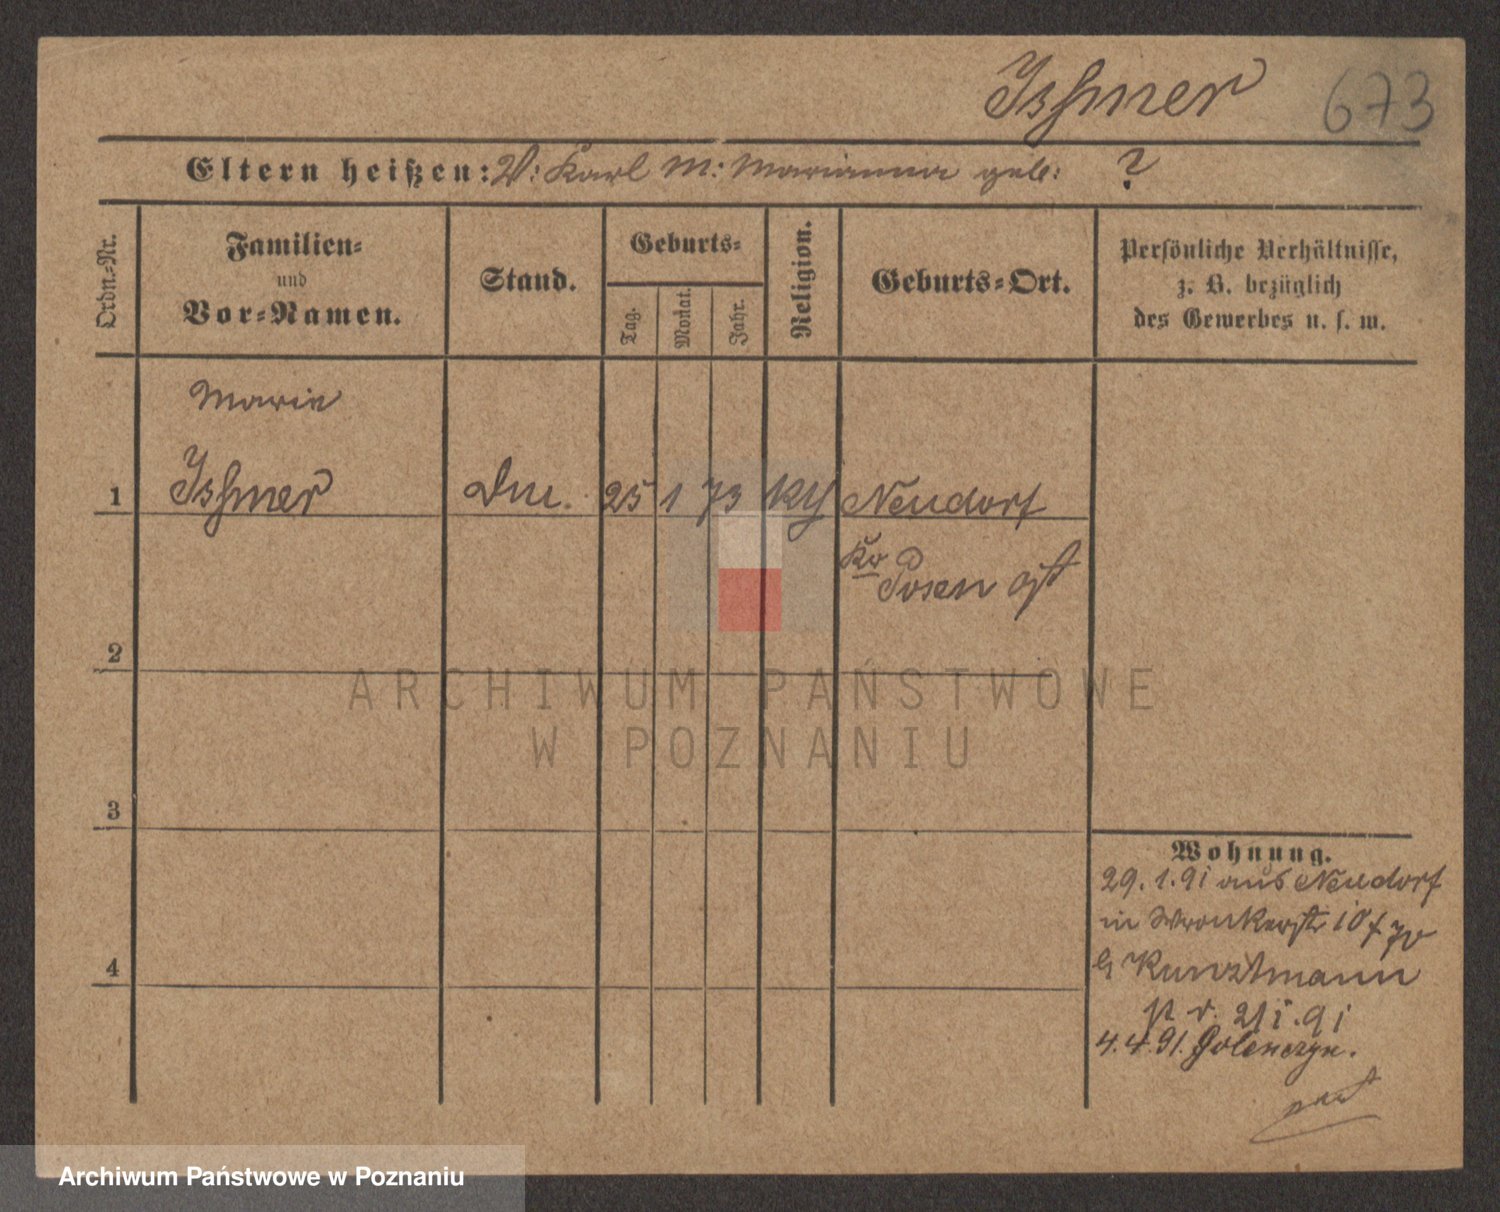 Ishmer 673
Eltern heißen: V: Karl M: Marianna geb: ?
Ordn.-Nr.
Familien-
und
Vor-Namen.
Stand.
Geburts-
Tag.
Monat.
Jahr.
Religion.
Geburts-Ort.
Persönliche Verhältnisse,
z. B. bezüglich
des Gewerbes u. s. w.
Marie
1 Ishmer 25 1 73 Neudorf
Kr Posen Ost
2
3
4
Wohnung.
29.1.91 aus Neudorf
in Wronkerstr 10
Kunztmann
21 1.91
4.4.91.
ARCHIWUM PAŃSTWOWE
W POZNANIU
Archiwum Państwowe w Poznaniu